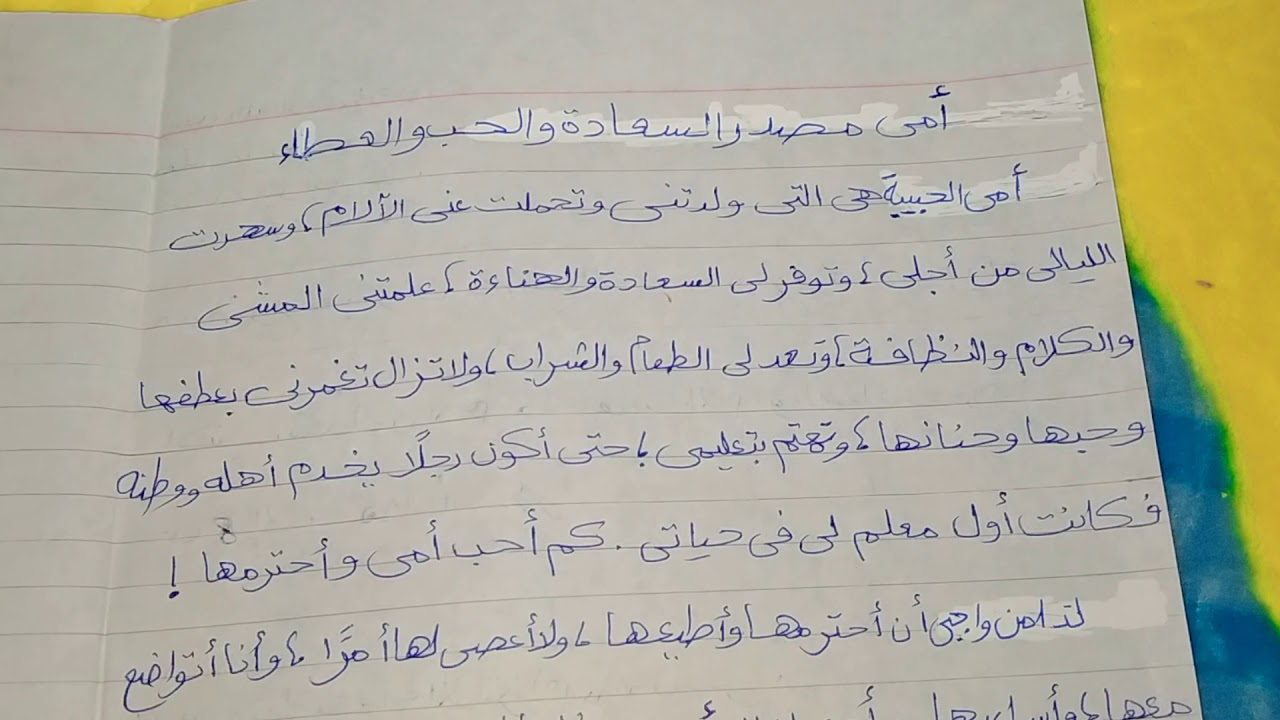 أمى مصدر السعادة والحب والعطاء
أمى الحبيبة هى التى ولدتنى وتحملت عنى الآلام، وسهرت
الليالى من أجلى، وتوفر لى السعادة والهناءة، علمتنى المشى
والكلام والنظافة، وتعد لى الطعام والشراب، ولا تزال تغمرنى بعطفها
وحبها وحنانها، وتهتم بتعليمى، حتى أكون رجلًا يخدم أهله ووطنه
فكانت أول معلم لى فى حياتى. كم أحب أمى وأحترمها!
لذا من واجبى أن أحترمها وأطيعها، ولا أعصى لها أمرًا، وأنا أتواضع
معها،